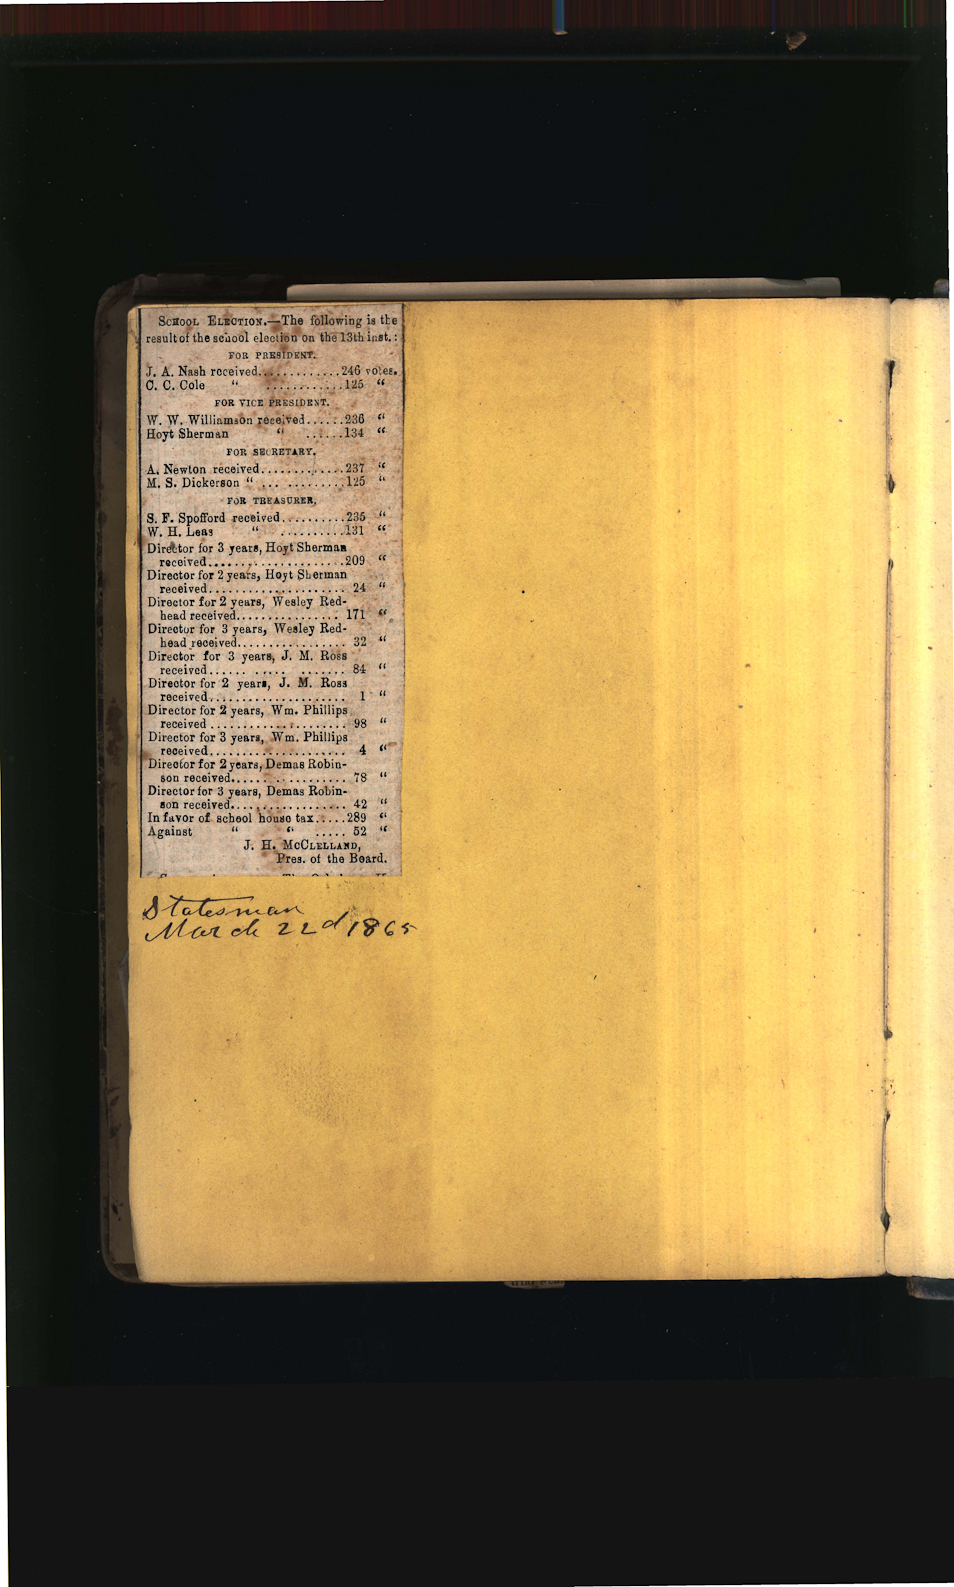 SCHOOL ELECTION.—The following is the
result of the school election on the 13th inst.:
FOR PRESIDENT.
J. A. Nash received.............246 votes.
C. C. Cole " ............125 "
FOR VICE PRESIDENT.
W. W. Williamson received......236 "
Hoyt Sherman " ......134 "
FOR SECRETARY.
A. Newton received..............237 "
M. S. Dickerson " ... .........125 "
FOR TREASURER.
S. F. Spofford received..........235 "
W. H. Leas " ..........131 "
Director for 3 years, Hoyt Sherman
received.....................209 "
Director for 2 years, Hoyt Sherman
received..................... 24 "
Director for 2 years, Wesley Red-
head received................ 171 "
Director for 3 years, Wesley Red-
head received................. 32 "
Director for 3 years, J. M. Ross
received...... ..... ....... 84 "
Director for 2 years, J. M. Ross
received..................... 1 "
Director for 2 years, Wm. Phillips
received ..................... 98 "
Director for 3 years, Wm. Phillips
received..................... 4 "
Director for 2 years, Demas Robin-
son received.................. 78 "
Director for 3 years, Demas Robin-
son received.................. 42 "
In favor of school house tax.....289 "
Against " " ..... 52 "
J. H. McCLELLAND,
Pres. of the Board.
Statesman
March 22d 1865